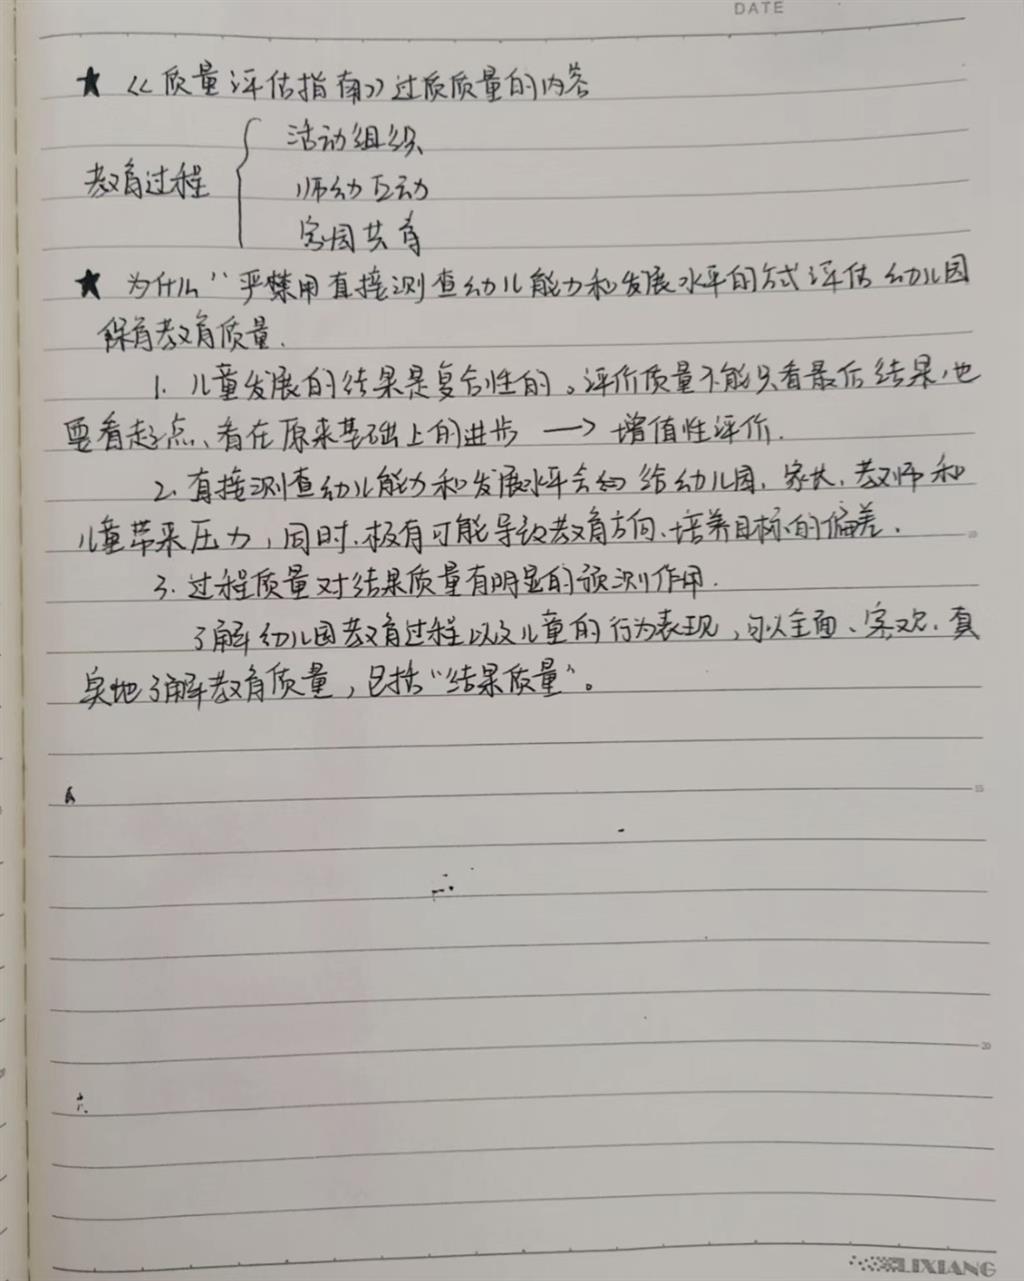 DATE
★ 《质量评估指南》过质质量的内容
活动组织
教育过程
师幼互动
家园共育
★ 为什么“严禁用直接测查幼儿能力和发展水平的方式评估幼儿园
保育教育质量.
1. 儿童发展的结果是复合性的。评价质量不能只看最后结果,也
要看起点、看在原来基础上的进步 → 增值性评价.
2. 直接测查幼儿能力和发展水平会给幼儿园、家长、教师和
儿童带来压力,同时.极有可能导致教育方向、培养目标的偏差.
3. 过程质量对结果质量有明显的预测作用.
了解幼儿园教育过程以及儿童的行为表现,可以全面、客观、真
实地了解教育质量,包括“结果质量”。
15
20
LIXIANG